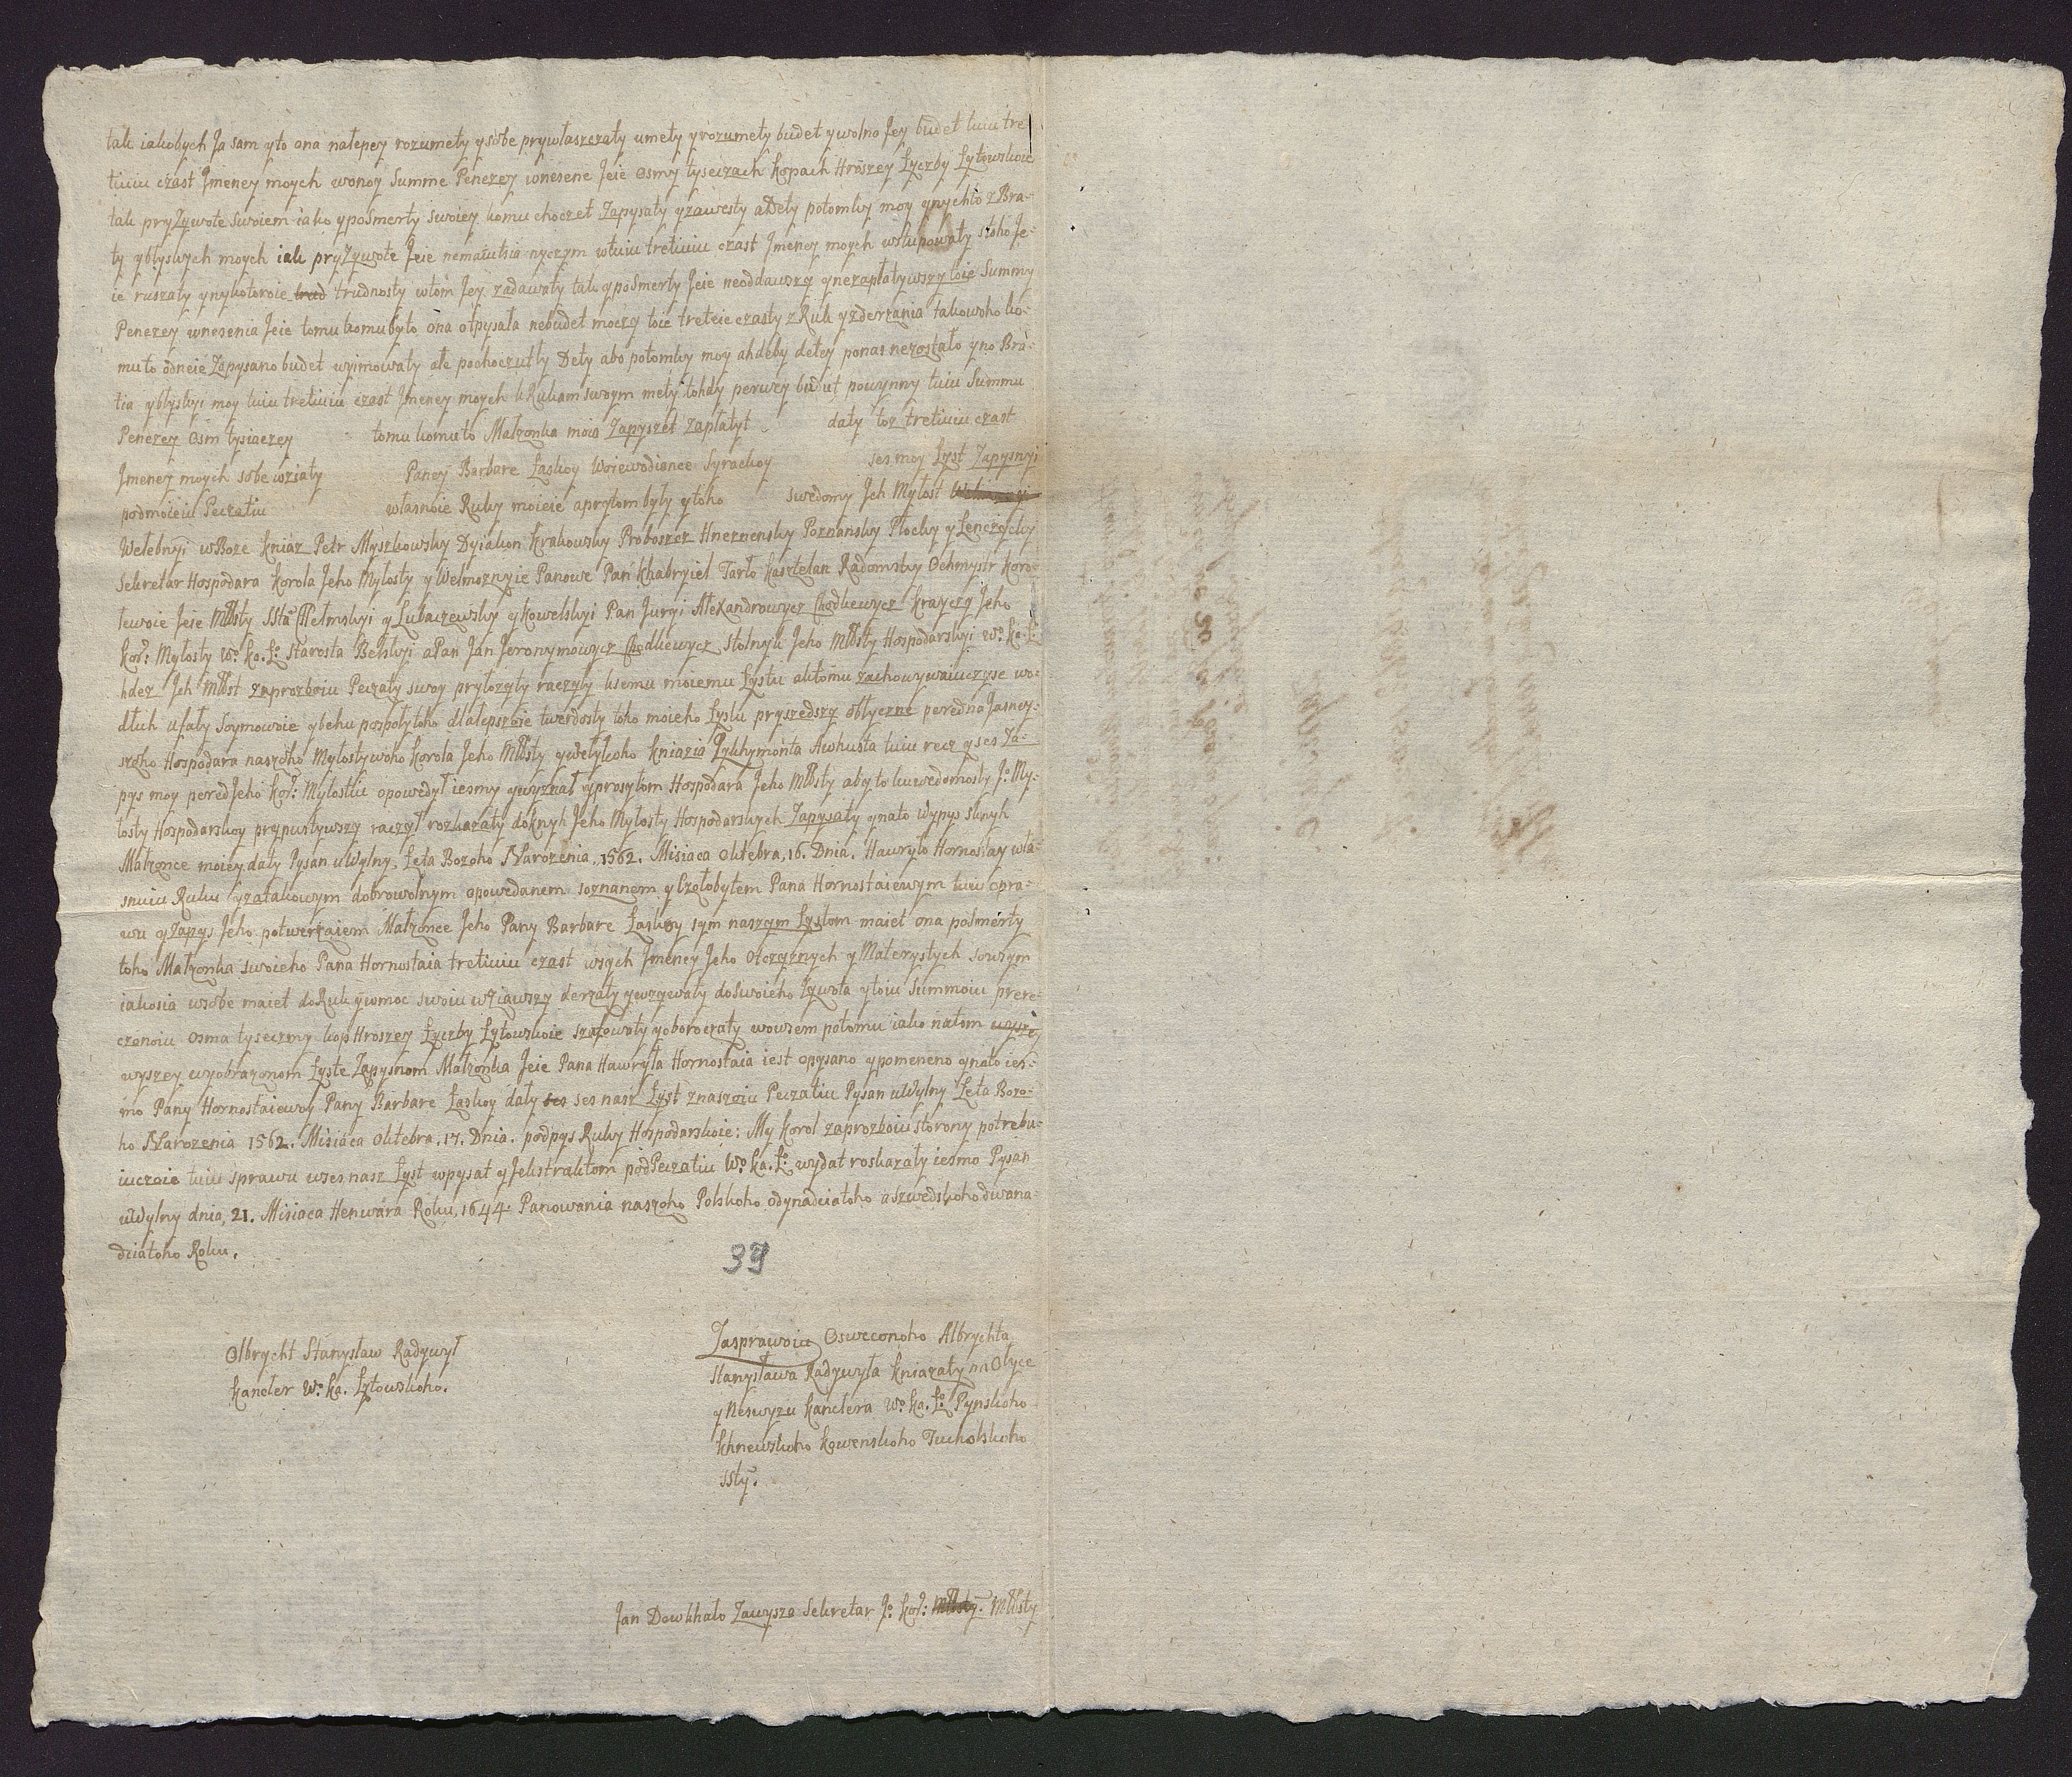 tak iakobych Ja sam yto ona nalepey rozumety ysobe prywłaszczaty umety yrozumety budet ywolno Jey budet tuiu tre
tiuiu czast Jmeney moych wonoy Summe Penezey wnesene Jeie Osmy tyseczach Kopach Hroszey Łyczby Łytowskoie
tak pryZywote swoiem iako yposmerty swoiey komu choczet Zapysaty yzawesty aDety potomky moy ynychto z Bra-
ty yblyskych moych iak pryZywote Jeie nemaiutsia nyczym wtuiu tretiuiu czast Jmeney moych wstupowaty stoho Je-
ie ruszaty ynykotoroie trud trudnosty wtom Jey zadawaty tak yposmerty Jeie neoddawszy ynezapłatywszy toie Summy
Penezey wnesenia Jeie tomu komubyto ona otpysała nebudet moczy toie treteie czasty z Ruk yzderzania takowoho ko-
mu to odneie Zapysano budet wyimowaty ałe pochoczutly Dety abo potomky moy ahdeby detey ponas nezostało yno Bra-
tia yblyskyi moy tuiu tretiuiu czast Jmeney moych k Rukam swoym mety tohdy perwey budut powynny tuiu Summu
Penezey Osm tysiaczey tomu komuto Małzonka moia Zapyszet zapłatyt daty toz tretiuiu czast
Jmeney moych sobe wziaty Paney Barbare Łaskoy Woiewodiance Syrackoy ses moy Łyst Zapysnyi
podmoieiu Peczatiu własnoie Ruky moieie aprytom były ytoho swedomy Jch Myłost
Wełebnyi wBoze Kniaz Petr Myszkowsky Dyiakon Krakowsky Proboszcz Hneznensky Poznansky Płocky y Łenczycky
Sekretar Hospodara Korola Jeho Myłosty y Wełmoznyie Panowe Pan Khabryiel Tarło Kasztelan Radomsky Ochmystr Koro-
lewoie Jeie Młosty SSta Chełmskyi y Lubaczewsky y Kowelskyi Pan Juryi Alexandrowycz Chodkewycz Krayczy Jeho
Kor: Myłosty Wo. Ka. Lo. Starosta Bełskyi aPan Jan Jeronymowycz Chodkewycz Stolnyk Jeho Młosty Hospodarskyi Wo. Ka. Lo.
hdez Jch Młost zaprozboiu Peczaty swoy pryłozyty raczyły ksemu moiemu Łystu aktomu zachowywaiuczyse wo-
dłuh ufały Soymowoie ybehu pospołytoho dlalepszoie twerdosty toho moieho Łystu pryszedszy obłyczne peredna Jasney-
szoho Hospodara naszoho Myłostywoho Korola Jeho Młosty ywełykoho Kniazia Zykhymonta Awhusta tuiu recz yses Za-
pys moy peredJeho Kor: Myłostiu opowedył iesmy ywyznał yprosyłom Hospodara Jeho Młosty aby to kuwedomosty Jo. My-
łosty Hospodarskoy prypustywszy raczył rozkazaty doknyh Jeho Myłosty Hospodarskych Zapysaty ynato wypys sknyh
Małzonce moiey daty Pysan uWylny. Łeta Bozoho Narozenia, 1562. Misiaca Oktebra, 16. Dnia. Hawryło Hornostay wła-
snuiu Ruku yzatakowym dobrowolnym opowedanem soznanem yCzołobytem Pana Hornostaiewym tuiu opra-
wu yZapys Jeho potwerzaiem Małzonce Jeho Pany Barbare Łaskoy sym naszym Łystom maiet ona posmerty
toho Małzonka swoieho Pana Hornostaia tretiuiu czast wsych Jmeney Jeho Otczyznych y Materystych sowsym
iakosia wsobe maiet doRuk ywomoc swoiu wziawszy derzaty ywzywaty doSwoieho Zywota ytoiu Summoiu prere-
czonoiu Osma tyseczmy kop Hroszey Łyczby Łytowskoie szafowaty yoboroczaty wowsem potomu iako natom
wyszey wyobrazonom Łyste Zapysnom Małzonka Jeie Pana Hawryła Hornostaia iest opysano ypomeneno ynato ies-
mo Pany Hornostaiewoy Pany Barbare Łaskoy dały ses ses nasz Łyst znaszoiu Peczatiu Pysan uWylny Łeta Bozo-
ho Narozenia 1562. Misiaca Oktebra, 17. Dnia. podpys Ruky Hospodarskoie: My Korol zaprozboiu storony potrebu-
iuczoie tuiu sprawu wses nasz Łyst wpysat yJekstraktom podPeczatiu Wo. Ka. Lo. wydat roskazały iesmo Pysan
uWylny dnia, 21. Misiaca Henwara Roku, 1644. Panowania naszoho Polskoho odynadciatoho aSzwedskoho dwana-
dciatoho Roku.
39
Olbrycht Stanysław Radywył
Kancler Wo. Ka. Łytowskoho.
Zasprawoiu Osweconoho Albrychta
Stanysława Radywyła Kniazaty na Ołyce
y Neswyzu Kanclera Wo. Ka. Lo. Pynskoho
Khnewskoho Kowenskoho Tucholskoho
SSty.
Jan Dowkhało Zawysza Sekretar Jo. Kor: Młosty. Młosty